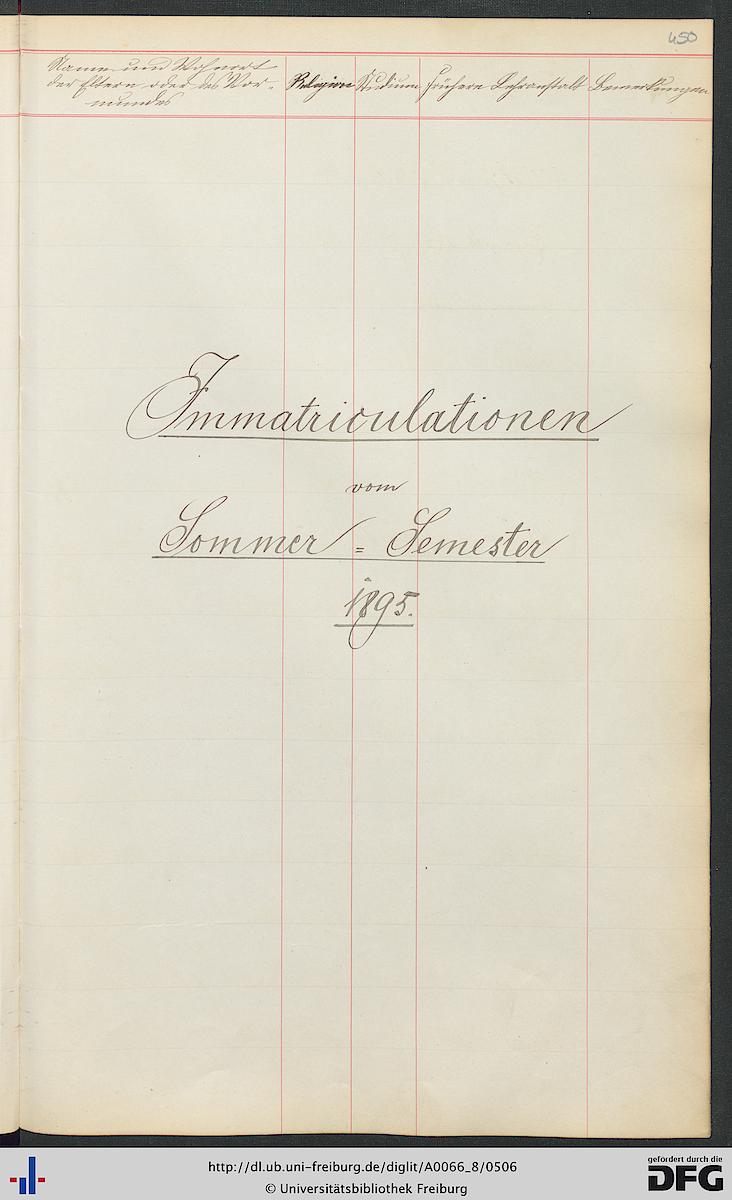 450
Name und Wohnort
der Eltern oder des Vor-
mundes
Religion
Studium
Frühere Lehranstalt
Bemerkungen
Immatriculationen
vom
Sommer = Semester
1895.
http://dl.ub.uni-freiburg.de/diglit/A0066_8/0506
© Universitätsbibliothek Freiburg
gefördert durch die
DFG